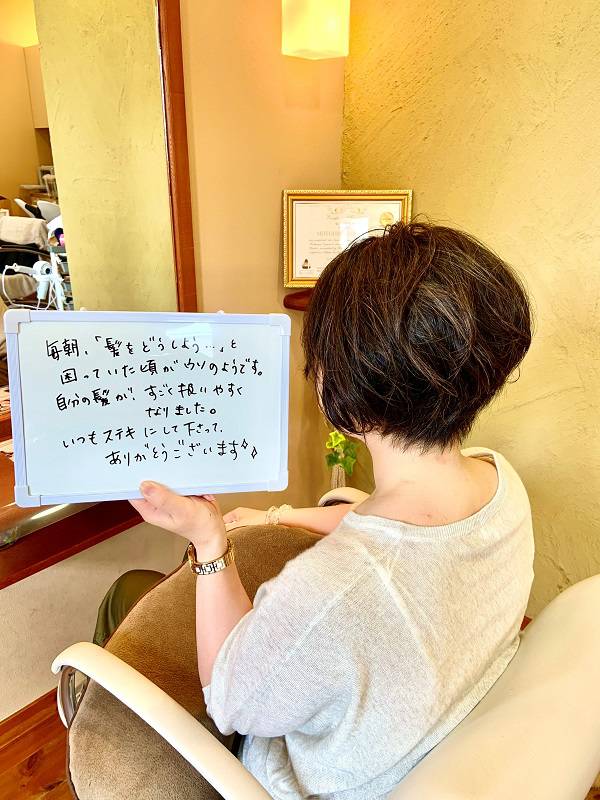 毎朝、「髪をどうしよう…」と
困っていた頃がウソのようです。
自分の髪が、すごく扱いやすく
なりました。
いつもステキにして下さって、
ありがとうございます